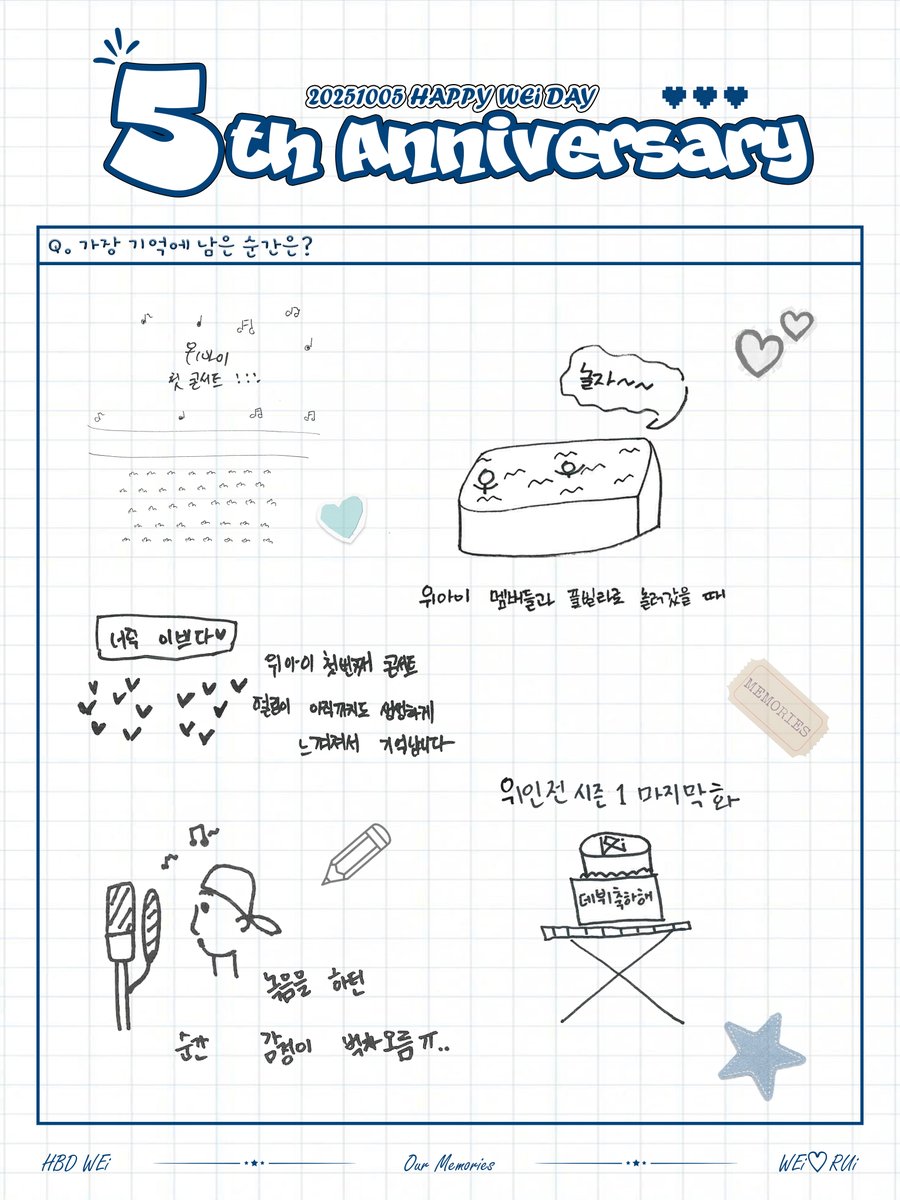 20251005 HAPPY WEi DAY
5th Anniversary
Q. 가장 기억에 남은 순간은?
위아이
첫 콘서트 !!!
놀자~~
위아이 멤버들과 풀빌라로 놀러갔을 때
너무 이쁘다♥
위아이 첫번째 콘서트
열림이 아직까지도 생생하게
느껴져서 기억납니다
MEMORIES
위인전 시즌 1 마지막 화
WEi
데뷔축하해
녹음을 하던
순간 감정이 벅차오름 ㅠ..
HBD WEi
Our Memories
WEi♡RUi